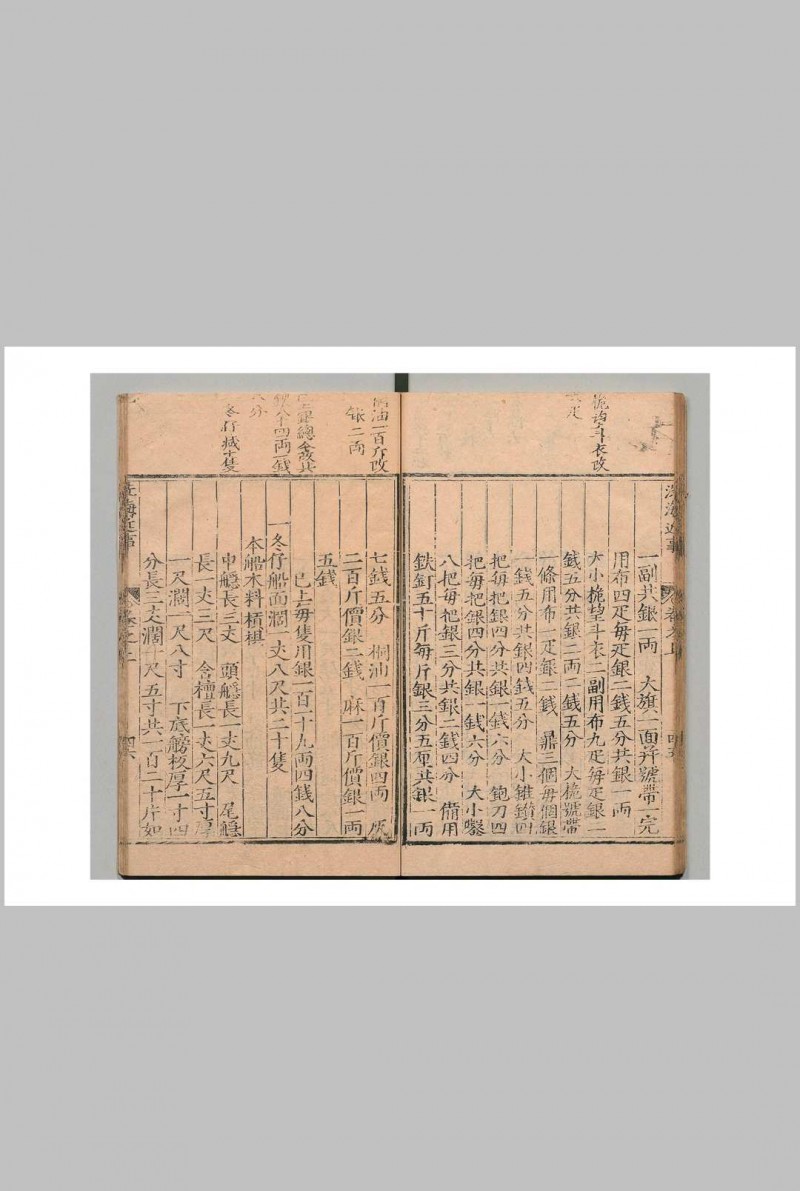 桅斗衣改
洗海近事
卷之上
一副共銀一両　大旗一面并號帶一完
用布四疋每疋銀二銭五分共銀一両
大小桅望斗衣二副用布九疋每疋銀二
銭五分共銀二両二銭五分　大桅號帶
一條用布一疋銀二銭　鼎三個每個銀
一銭五分共銀四銭五分　大小鑽四
把每把銀四分共銀一銭六分　鉋刀四
把每把銀四分共銀一銭六分　大小鑿
八把每把銀三分共銀二銭四分　備用
鉄釘五十斤每斤銀三分五厘共銀一両
油一百斤改
銀二両
銀總全改共
八十四両一銭
八分
冬仔減十隻
七銭五分　桐油一百斤價銀四両　灰
二百斤價銀二銭　麻一百斤價銀一両
五銭
已上每隻用銀一百十九両四銭八分
一冬仔船面濶一丈八尺共二十隻
本船木料槓棋
中𦪇長三丈　頭𦪇長一丈九尺　尾𦪇
長一丈三尺　含檀長一丈六尺五寸厚
一尺濶一尺八寸　下底艕板厚一寸四
分長三丈濶十尺五寸共一百二十片如
洗海近事
卷之上
四六